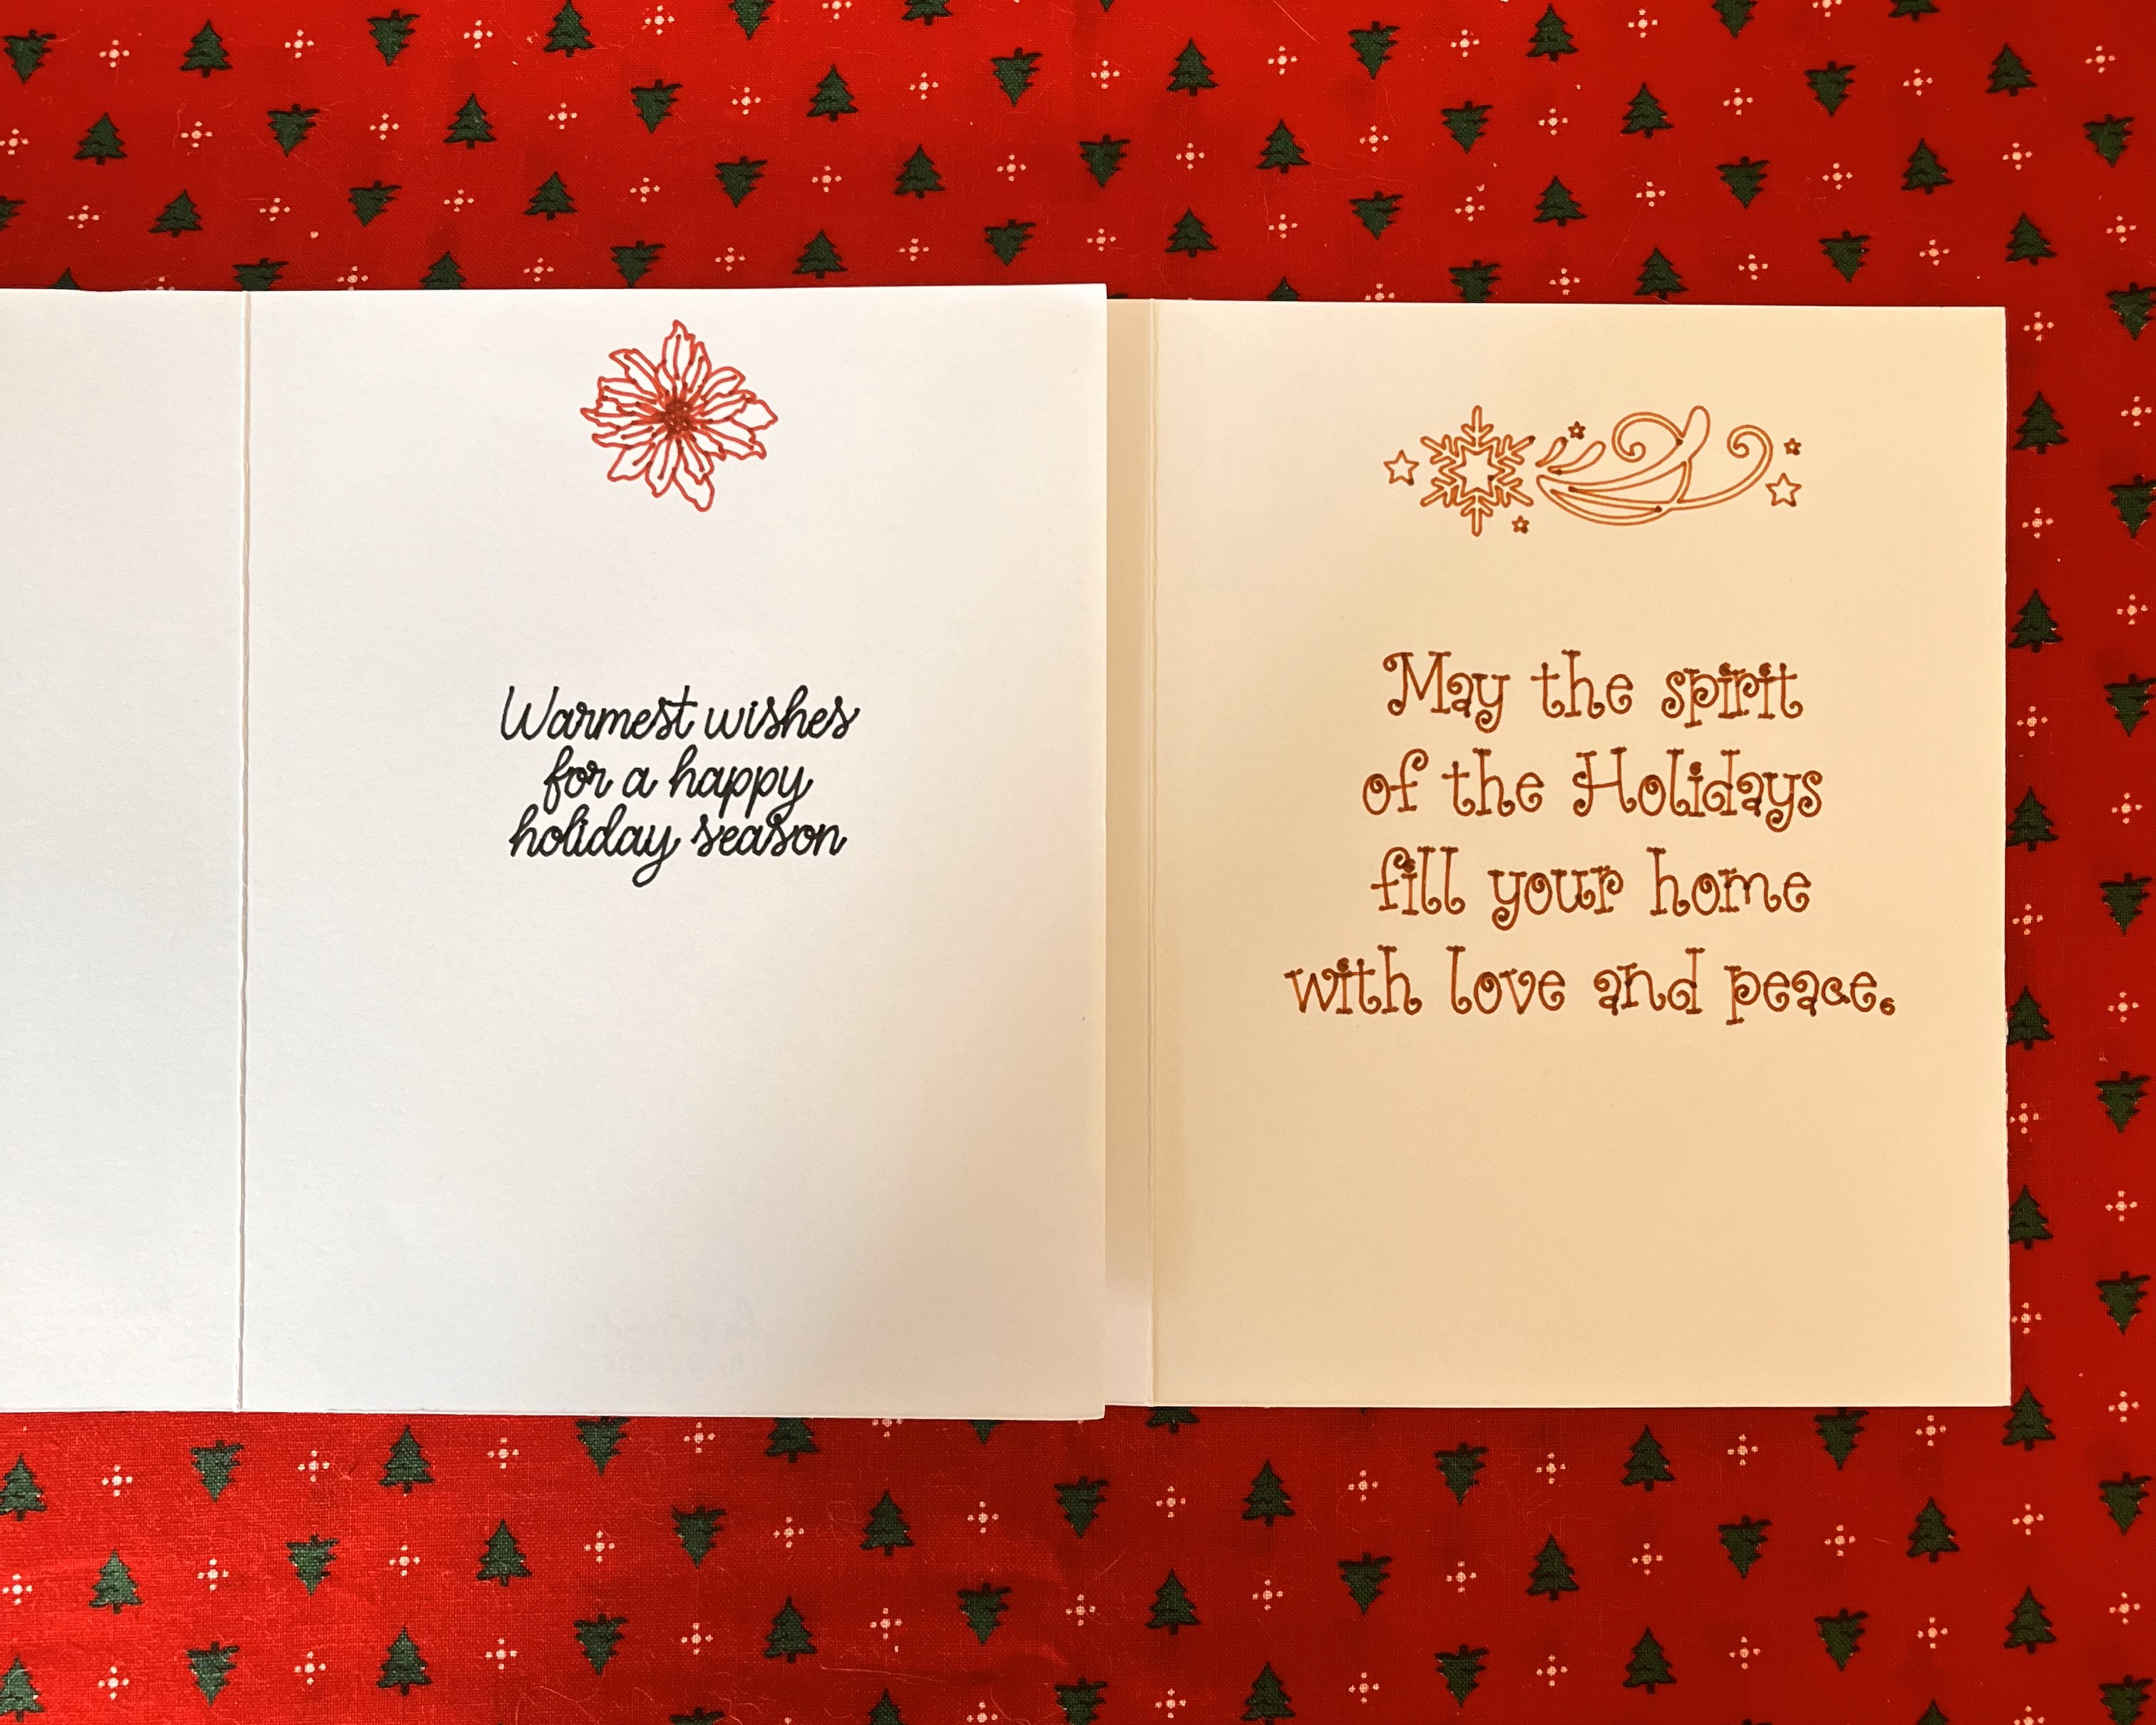 Warmest wishes
for a happy
holiday season
May the spirit
of the Holidays
fill your home
with love and peace.